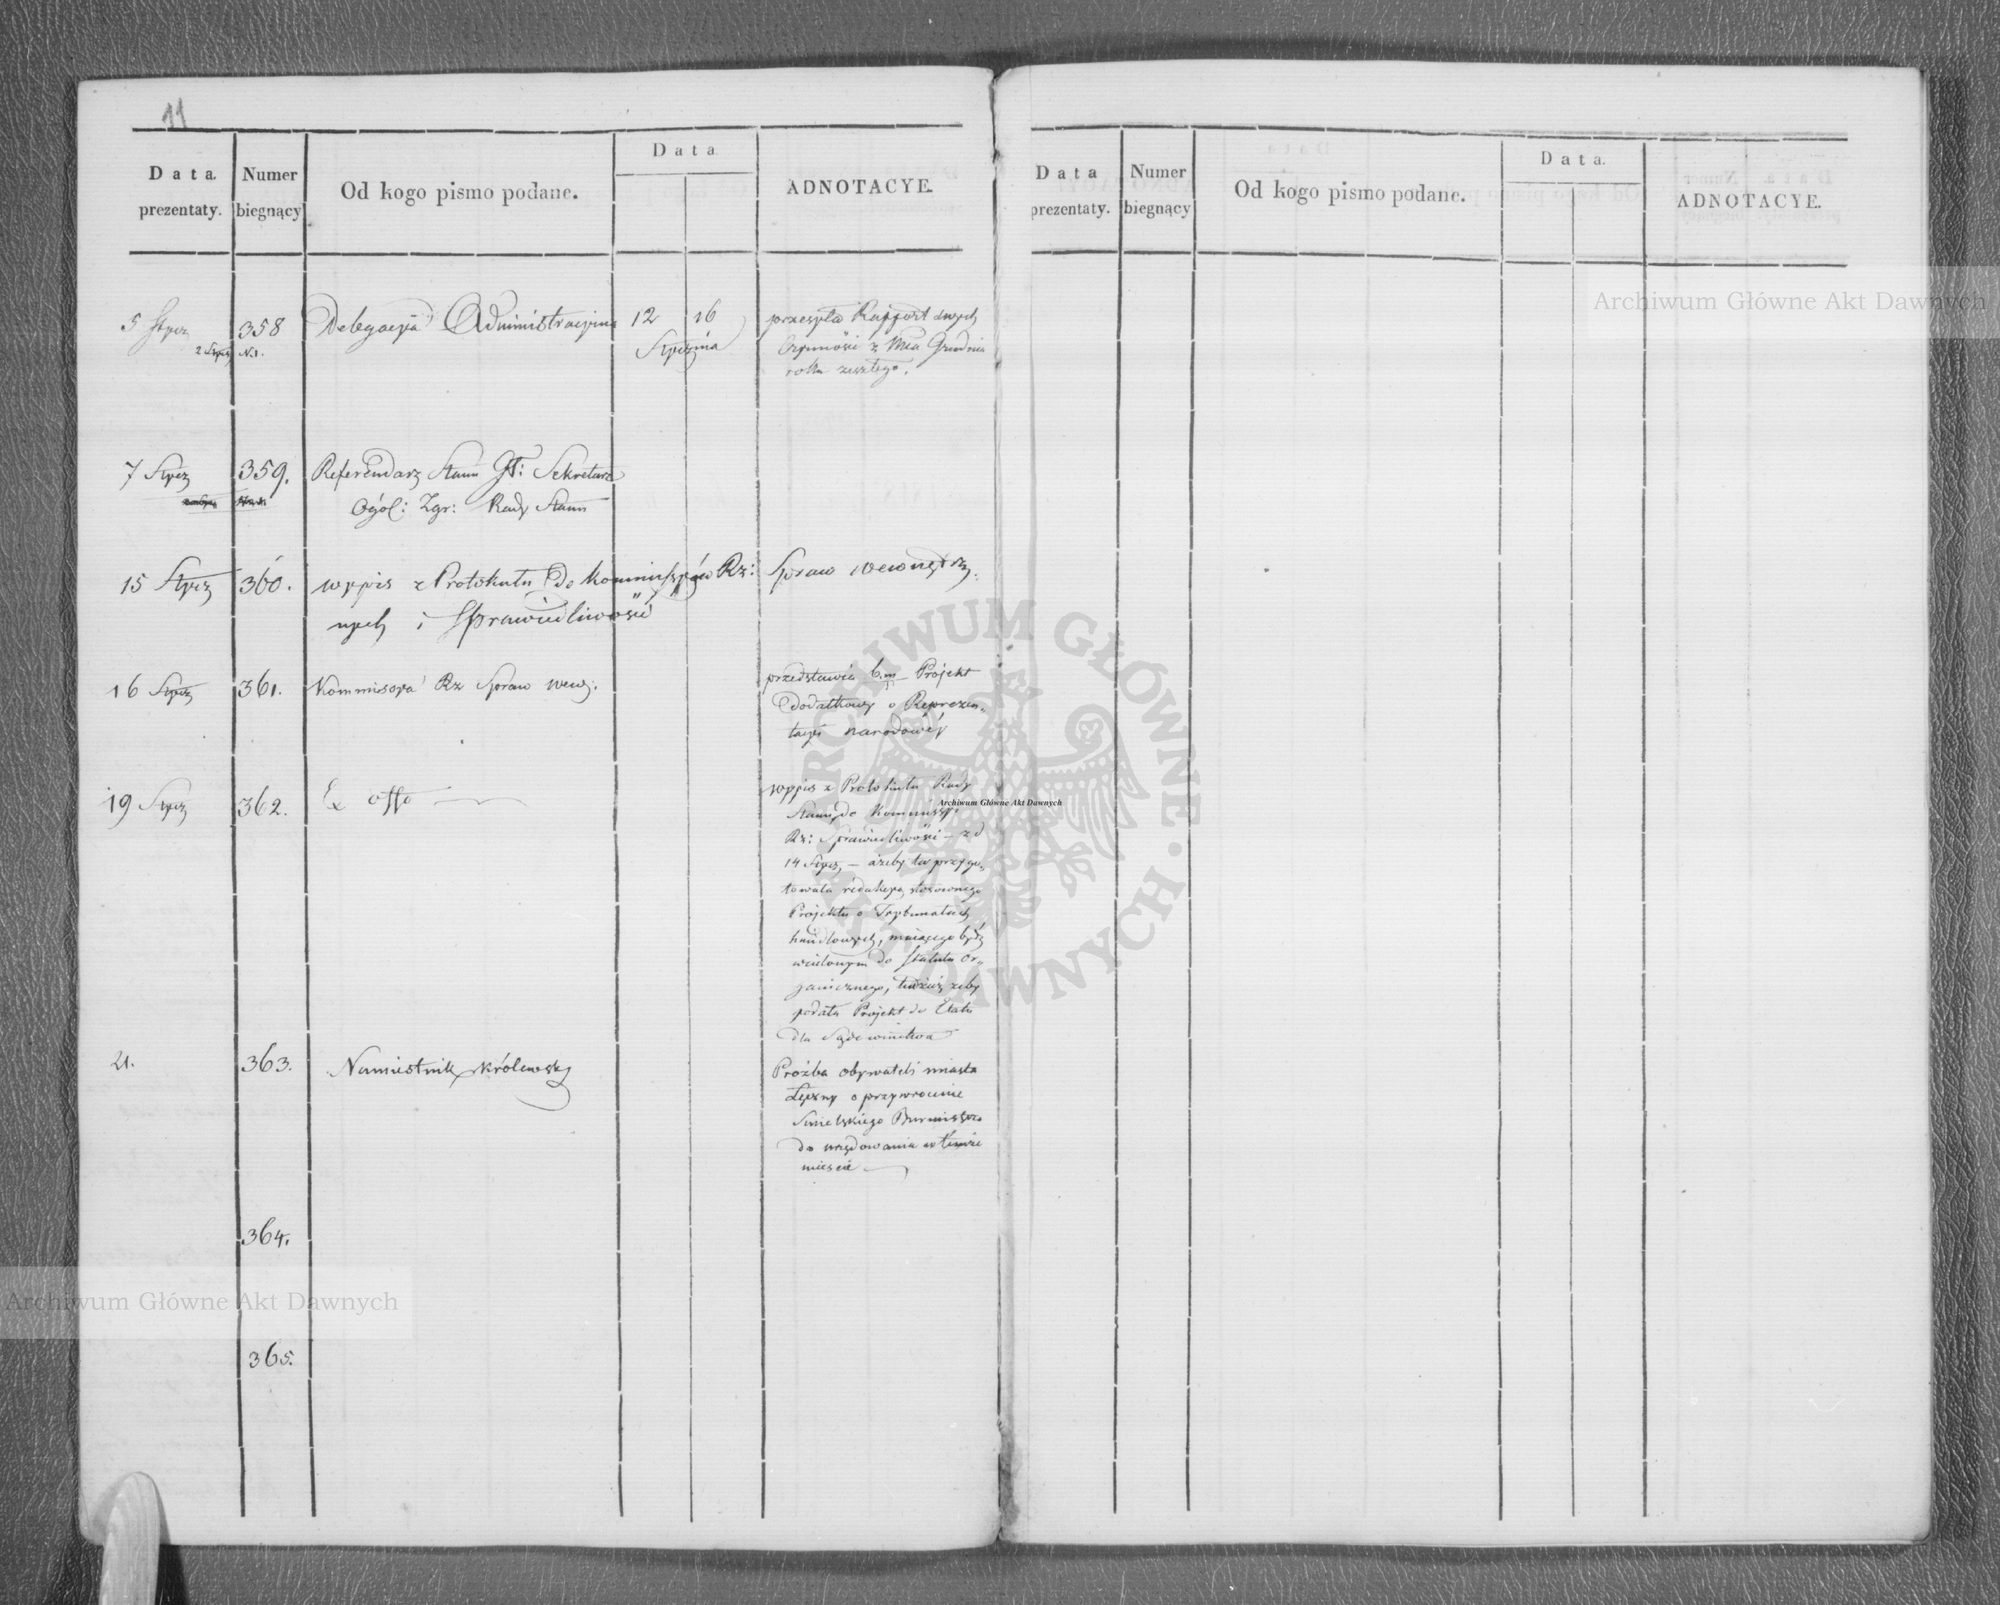 11
Data prezentaty. Numer biegnący Od kogo pismo podane. Data ADNOTACYE.
5 Stycz 358 Delegacya Administracyjna 12 16 przesyła Rapport swych
2 Stycz N.1. Stycznia Czynności z Mca Grudnia
roku zeszłego.
7 Stycz 359. Referendarz Stanu Gł: Sekretarz
Ogól: Zgr: Rady Stanu
15 Stycz 360. wypis z Protokułu do Kommissyów Rz: Spraw wewnętrz,
nych i Sprawiedliwości
16 Stycz 361. Kommissya Rz Spraw wew: przedstawia Projekt
Dodatkowy o Reprezen,
tacyi narodowéy
19 Stycz 362. Ex offo wypis z Protokułu Rady
Stanu do Kommissyi
Rz: Sprawiedliwości – z d
14 Stycz – ażeby ta przygo,
towała redakcyą stosownego
Projektu o Trybunałach
handlowych, maiącego bydź
wcielonym do Statutu or,
ganicznego, tudzież żeby
podała Projekt do Etatu
dla Sądownictwa
21. 363. Namiestnik Królewski Prożba obywateli miasta
o przywrócenie
Burmistrza
do urzędowania w témże
mieście
364.
365.
Data prezentaty. Numer biegnący Od kogo pismo podane. Data. ADNOTACYE.
Archiwum Główne Akt Dawnych
Archiwum Główne Akt Dawnych
Archiwum Główne Akt Dawnych
ARCHIWUM GŁÓWNE AKT DAWNYCH